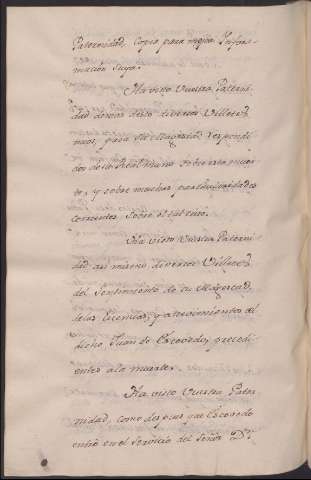 Paternidad, copia para mejor Infor-
macion suya.
Ha visto Vuestra Paterni-
dad demas desto diversos Villetes
mios, para Su Magestad respondi-
dos de su Real mano sobre esta muer-
te, y sobre muchas particularidades
corrientes sobre el tal caso.
Ha visto Vuestra Paterni-
dad assi mismo diversos Villetes
del Sentimiento de Su Magestad,
de las licencias, y atrevimientos del
dicho Juan de Escovedo, precedi-
entes a la muerte.
Ha visto Vuestra Pater-
nidad, como despues que Escovedo
entró en el servicio del Señor Dn.